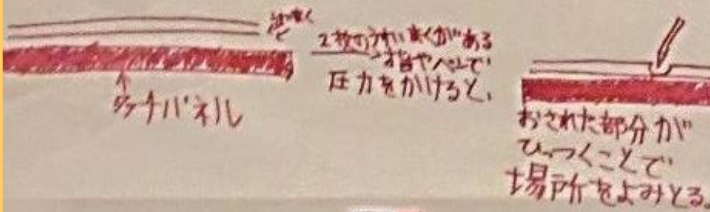 タッチパネル
2枚のうすい まくがある
指やペンで
圧力をかけると、
おされた部分が
ひっつくことで
場所をよみとる。